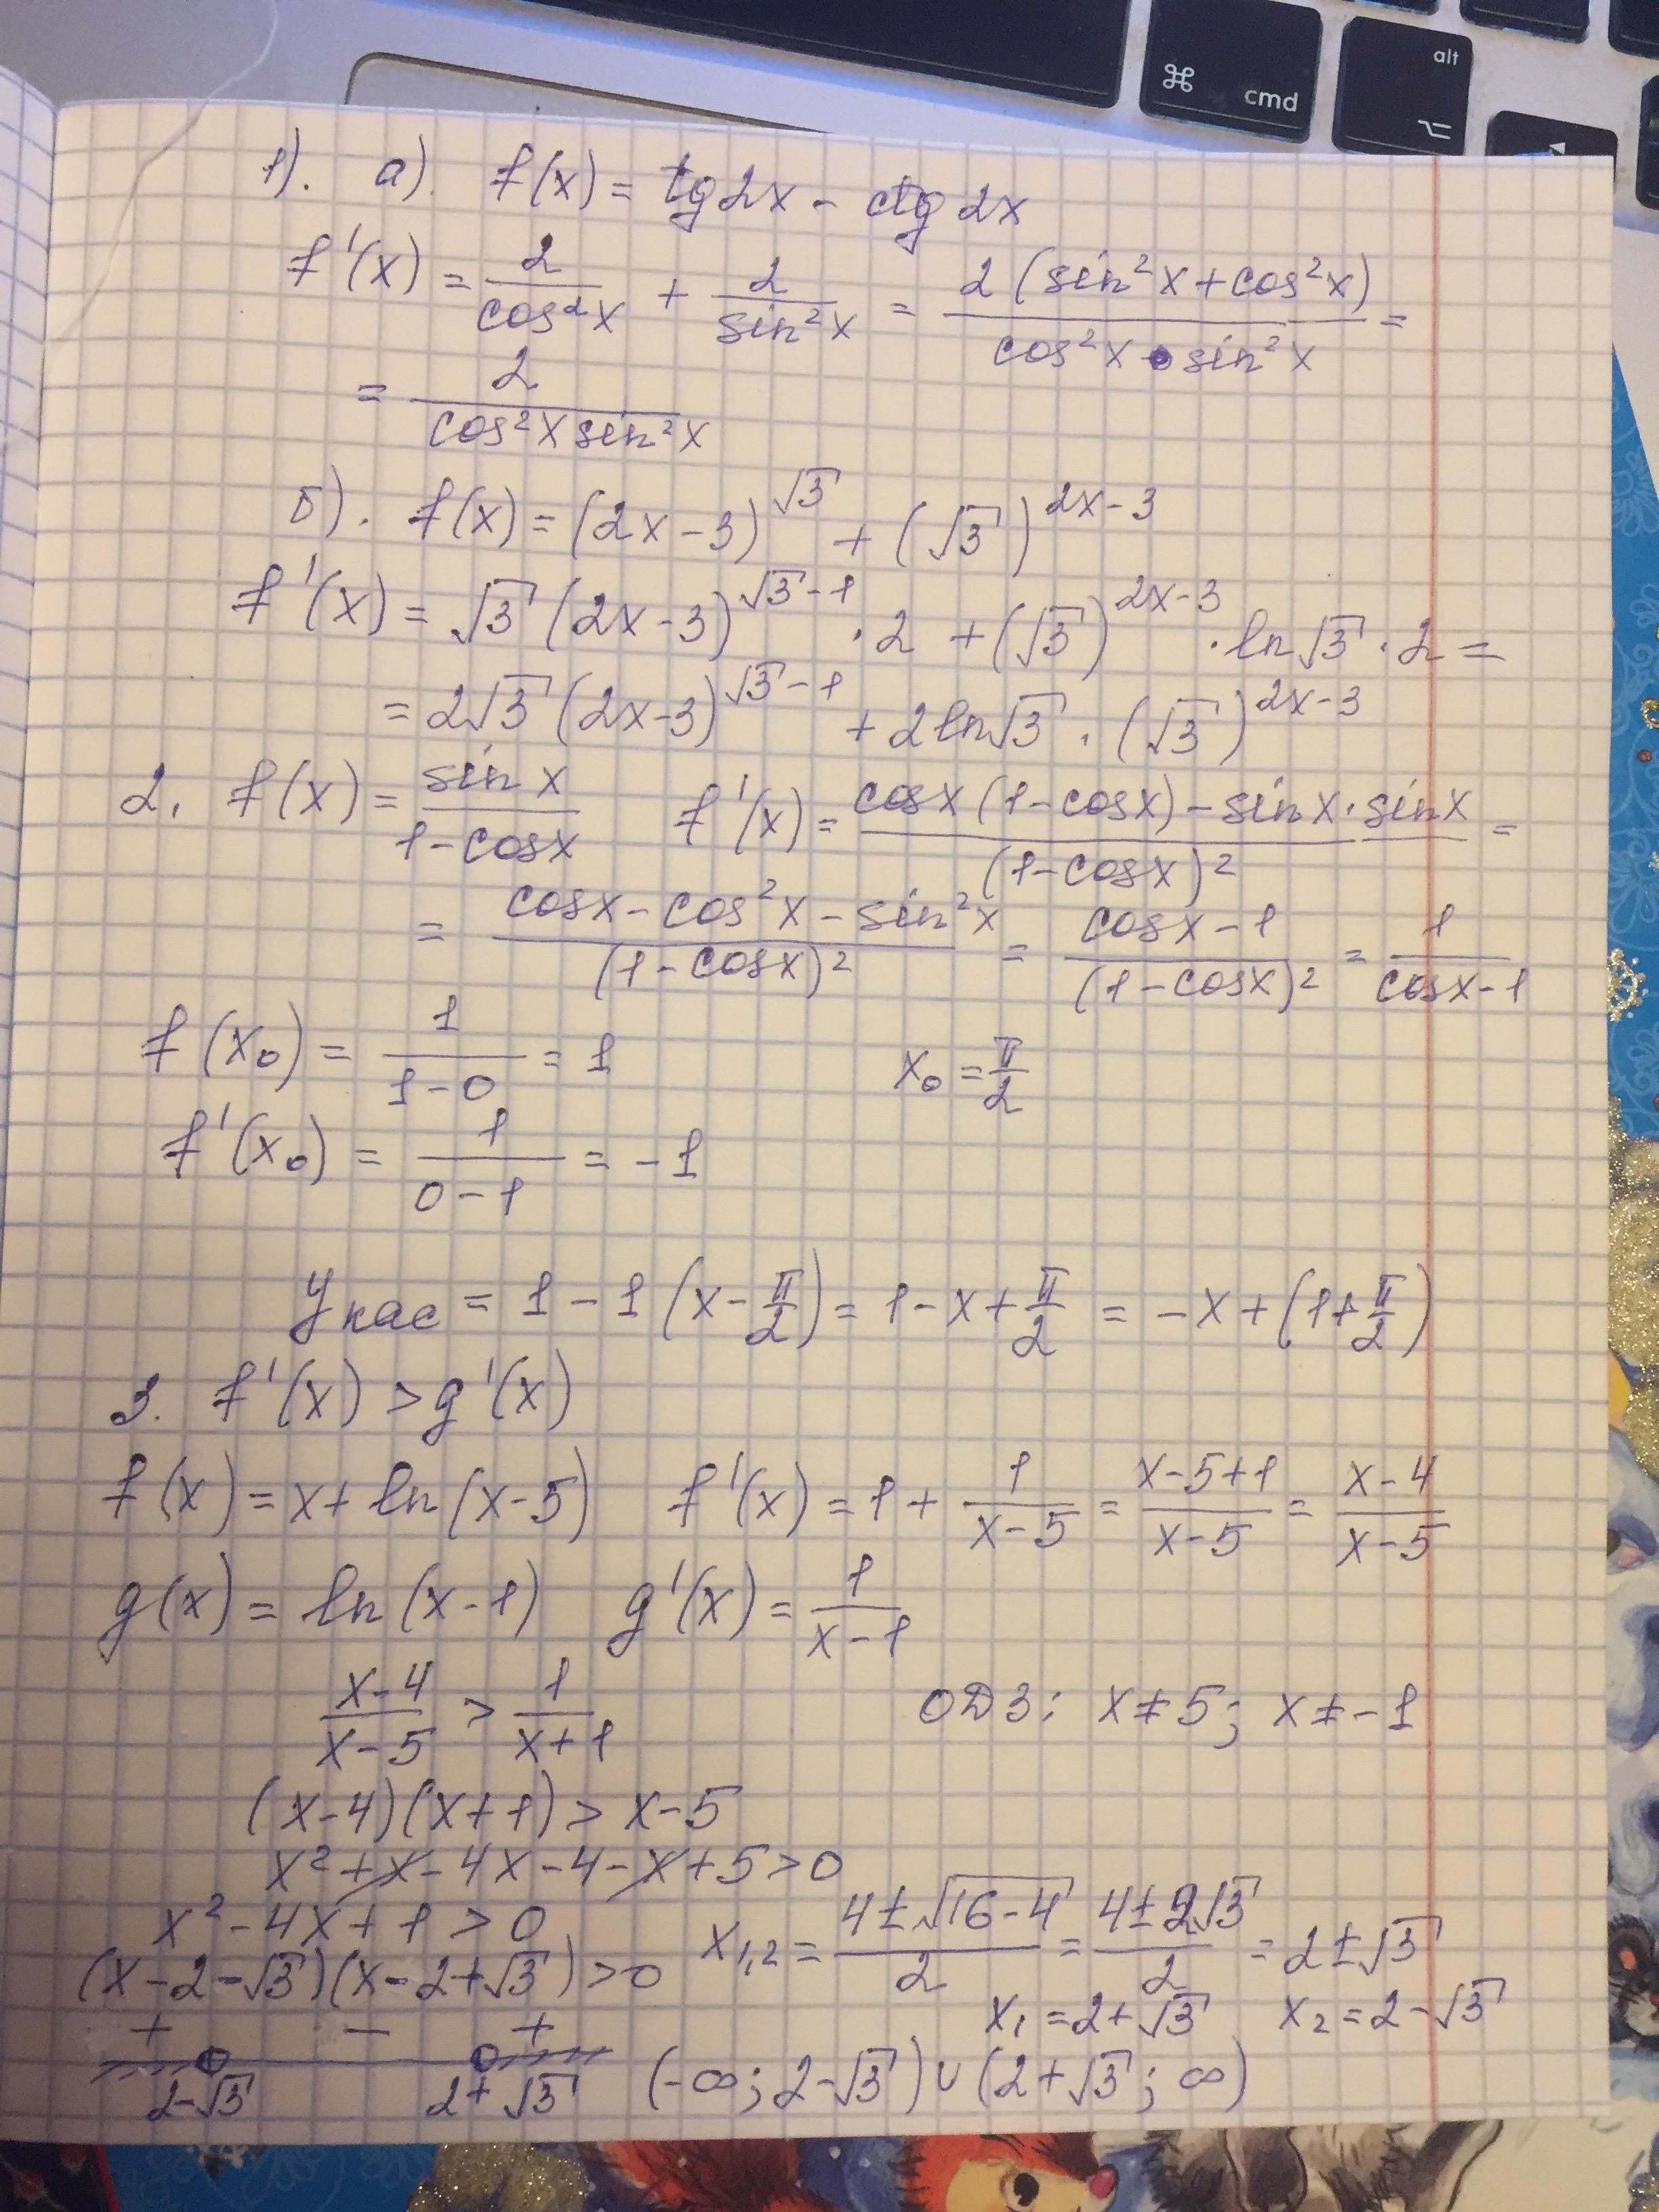 ⌘ cmd
alt
⌥
1). а). f(x) = tg2x - ctg2x
f'(x) = 2/cos²x + 2/sin²x = 2(sin²x+cos²x)/cos²x • sin²x =
= 2/cos²x sin²x
б). f(x) = (2x-3)^√3 + (√3)^2x-3
f'(x) = √3(2x-3)^√3-1 · 2 + (√3)^2x-3 · ln√3 · 2 =
= 2√3(2x-3)^√3-1 + 2ln√3 · (√3)^2x-3
2. f(x) = sin x/1-cosx f'(x) = cosx(1-cosx) - sinx·sinx/(1-cosx)² =
= cosx - cos²x - sin²x/(1-cosx)² = cosx-1/(1-cosx)² = 1/cosx-1
f(x₀) = 1/1-0 = 1 x₀ = π/2
f'(x₀) = 1/0-1 = -1
Укас = 1 - 1(x - π/2) = 1 - x + π/2 = -x + (1+π/2)
3. f'(x) > g'(x)
f(x) = x + ln(x-5) f'(x) = 1 + 1/x-5 = x-5+1/x-5 = x-4/x-5
g(x) = ln(x-1) g'(x) = 1/x-1
x-4/x-5 > 1/x+1 ОДЗ: x≠5; x≠-1
(x-4)(x+1) > x-5
x²+x-4x-4-x+5>0
x²-4x+1>0 x₁,₂ = 4±√16-4/2 = 4±2√3/2 = 2±√3
(x-2-√3)(x-2+√3)>0 x₁=2+√3 x₂=2-√3
+ - +
2-√3 2+√3 (-∞; 2-√3) ∪ (2+√3; ∞)